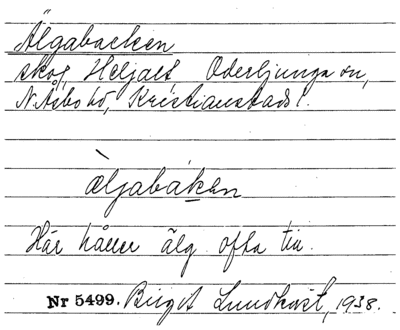 Älgabacken
skog, Heljalt, Oderljunga sn,
N.Åsbo hd, Kristianstads l.
àljabákan
Här håller älg ofta till.
Nr 5499. Birgit Lundkvist, 1938.